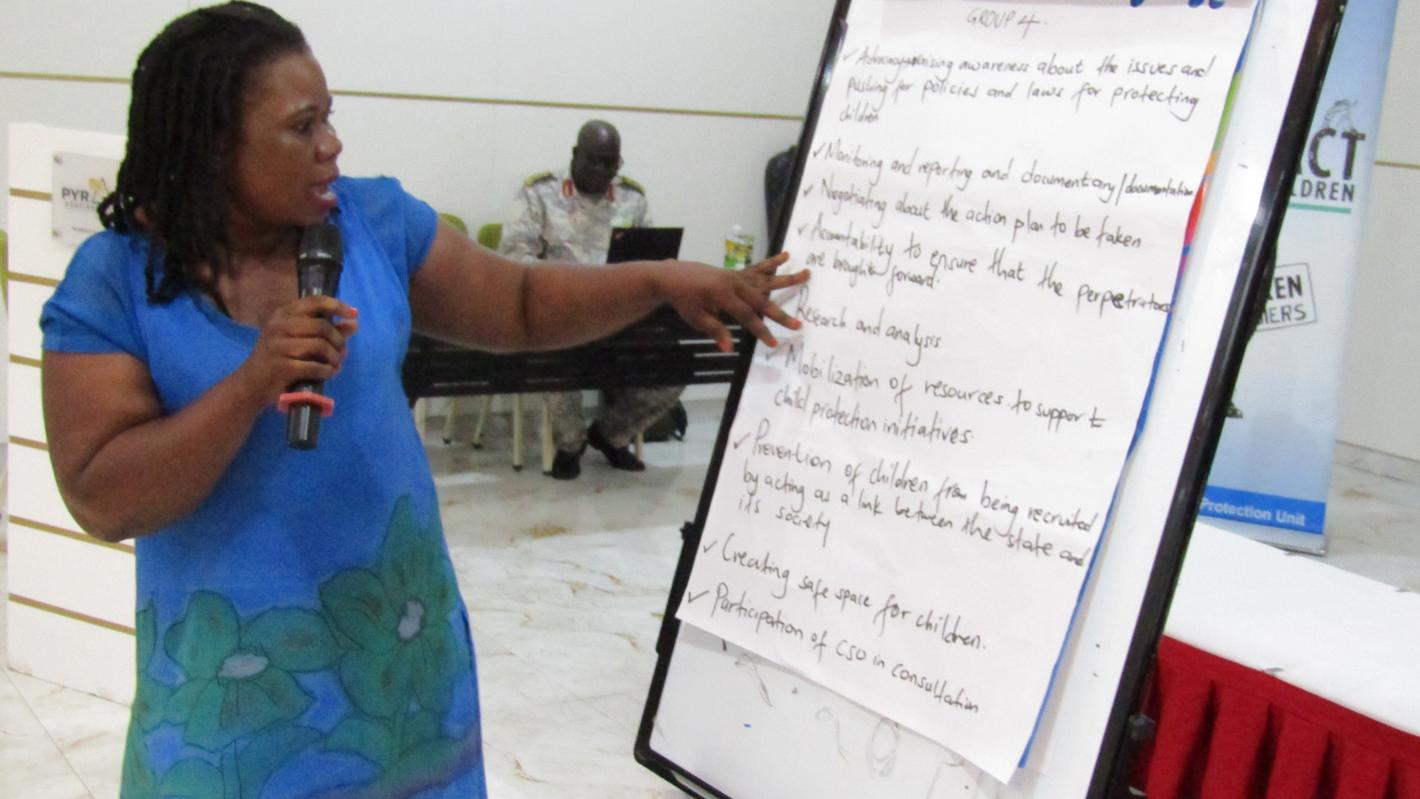 GROUP 4.
✓ Advocacy-raising awareness about the issues and
pushing for policies and laws for protecting
children
✓ Monitoring and reporting and documentary/documentation
✓ Negotiating about the action plan to be taken
✓ Accountability to ensure that the perpetrators
are brought forward.
Research and analysis
Mobilization of resources to support
child protection initiatives.
✓ Prevention of children from being recruited
by acting as a link between the state and
its society
✓ Creating safe space for children.
✓ Participation of CSO in consultation
PYR
CT
LDREN
EN
IERS
Protection Unit